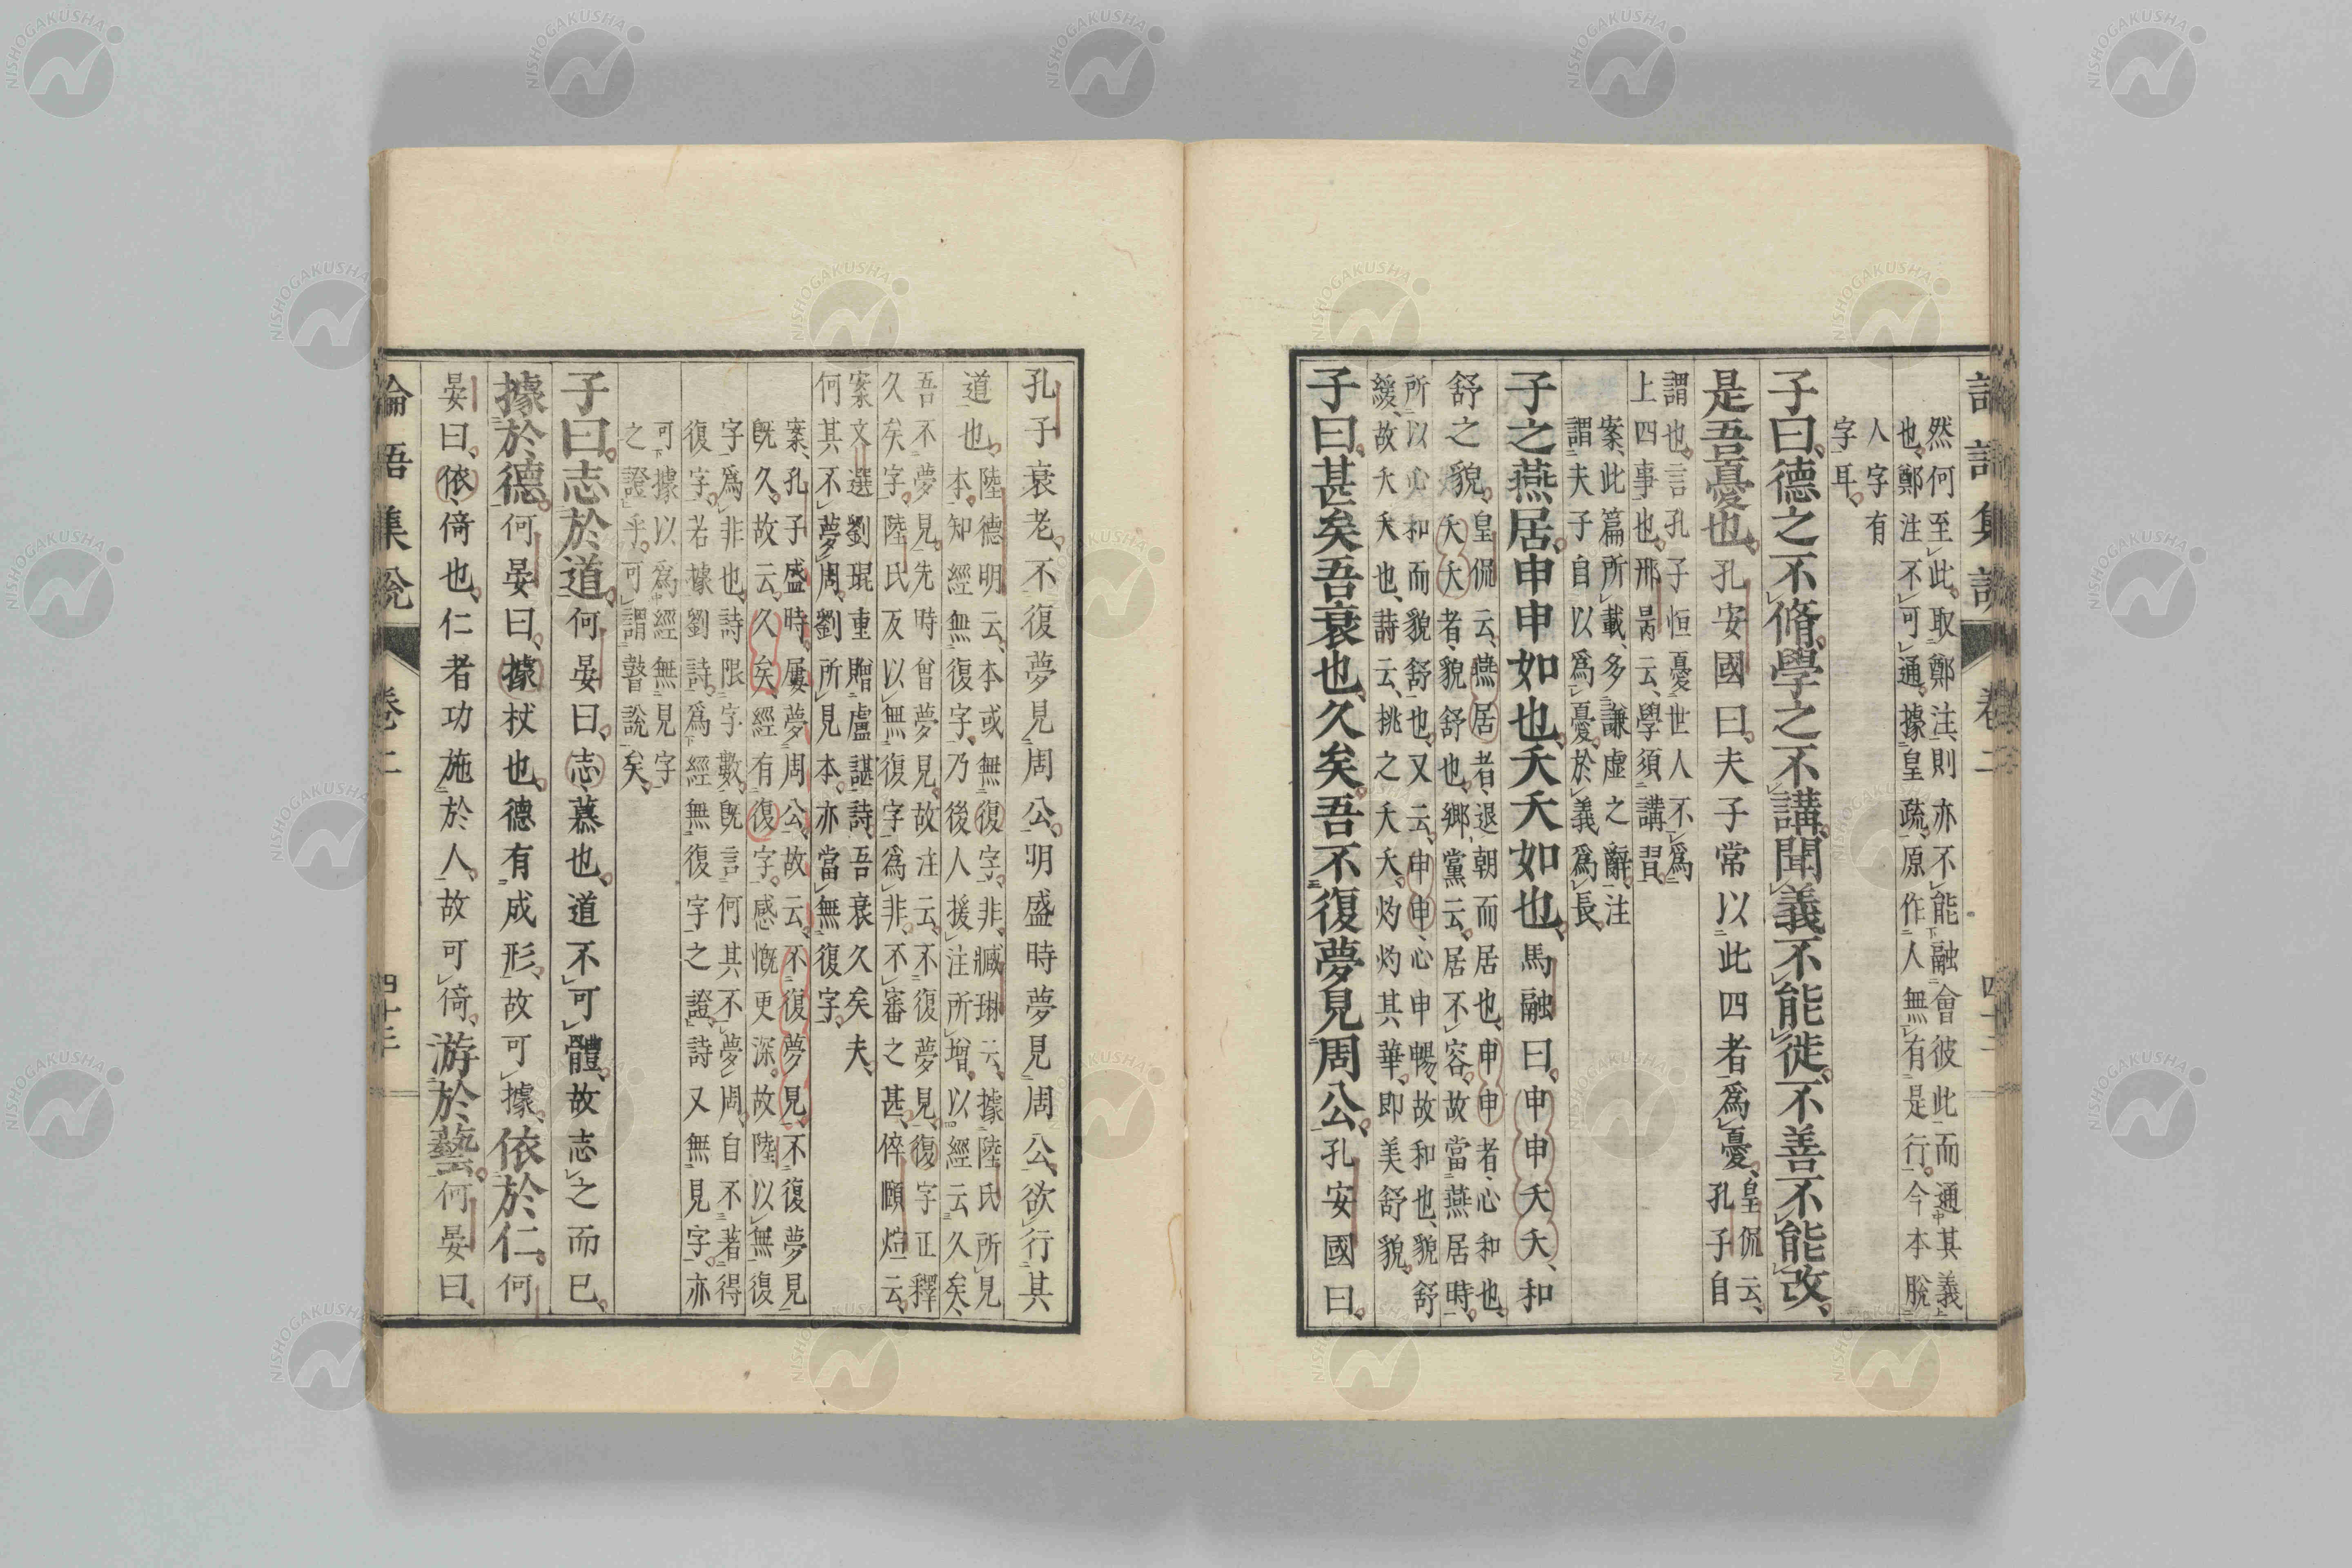 論語集說 卷二 四十二
然何至此、取鄭注、則亦不能融會彼此而通其義
也、鄭注不可通、據皇疏、原作人無有是行、今本脫
人字有
字耳。
子曰、德之不脩、學之不講、聞義不能徙、不善不能改、
是吾憂也、孔安國曰、夫子常以此四者爲憂、皇侃云、
孔子自
謂也、言孔子恒憂世人不爲
上四事也、邢昺云、學須講習、
案、此篇所載、多謙虛之辭、注
謂夫子自以爲憂、於義爲長、
子之燕居、申申如也、夭夭如也、馬融曰、申申夭夭、和
舒之貌。皇侃云、燕居者、退朝而居也、申申者、心和也、
夭夭者、貌舒也、鄉黨云、居不容、故當燕居時、
所以心和而貌舒也、又云、申申、心申暢、故和也、貌舒
緩、故夭夭也、詩云、桃之夭夭、灼灼其華、即美舒貌。
子曰、甚矣吾衰也、久矣吾不復夢見周公、孔安國曰、
孔子衰老、不復夢見周公。明盛時夢見周公、欲行其
道也、陸德明云、本或無復字、非、臧琳云、據陸氏所見
本、知經無復字、乃後人援注所增、以經云久矣、
吾不夢見、先時曾夢見、故注云、不復夢見、復字正釋
久矣字、陸氏反以無復字爲非、不審之甚、倅頤煊云、
案文選劉琨重贈盧諶詩、吾衰久矣夫、
何其不夢周、劉所見本、亦當無復字、
案、孔子盛時、屢夢周公、故云、不復夢見、不復夢見
旣久、故云、久矣、經有復字、感慨更深、故陸以無復
字爲非也、詩限字數、旣言何其不夢周、自不著得
復字、若據劉詩、爲經無復字之證、詩又無見字、亦
可據以爲經無見字
之證乎、可謂瞽說矣、
子曰、志於道、何晏曰、志、慕也、道不可體、故志之而已、
據於德、何晏曰、據、杖也、德有成形、故可據、依於仁、何
晏曰、依、倚也、仁者功施於人、故可倚、游於藝、何晏曰、
論語集說 卷二 四十三